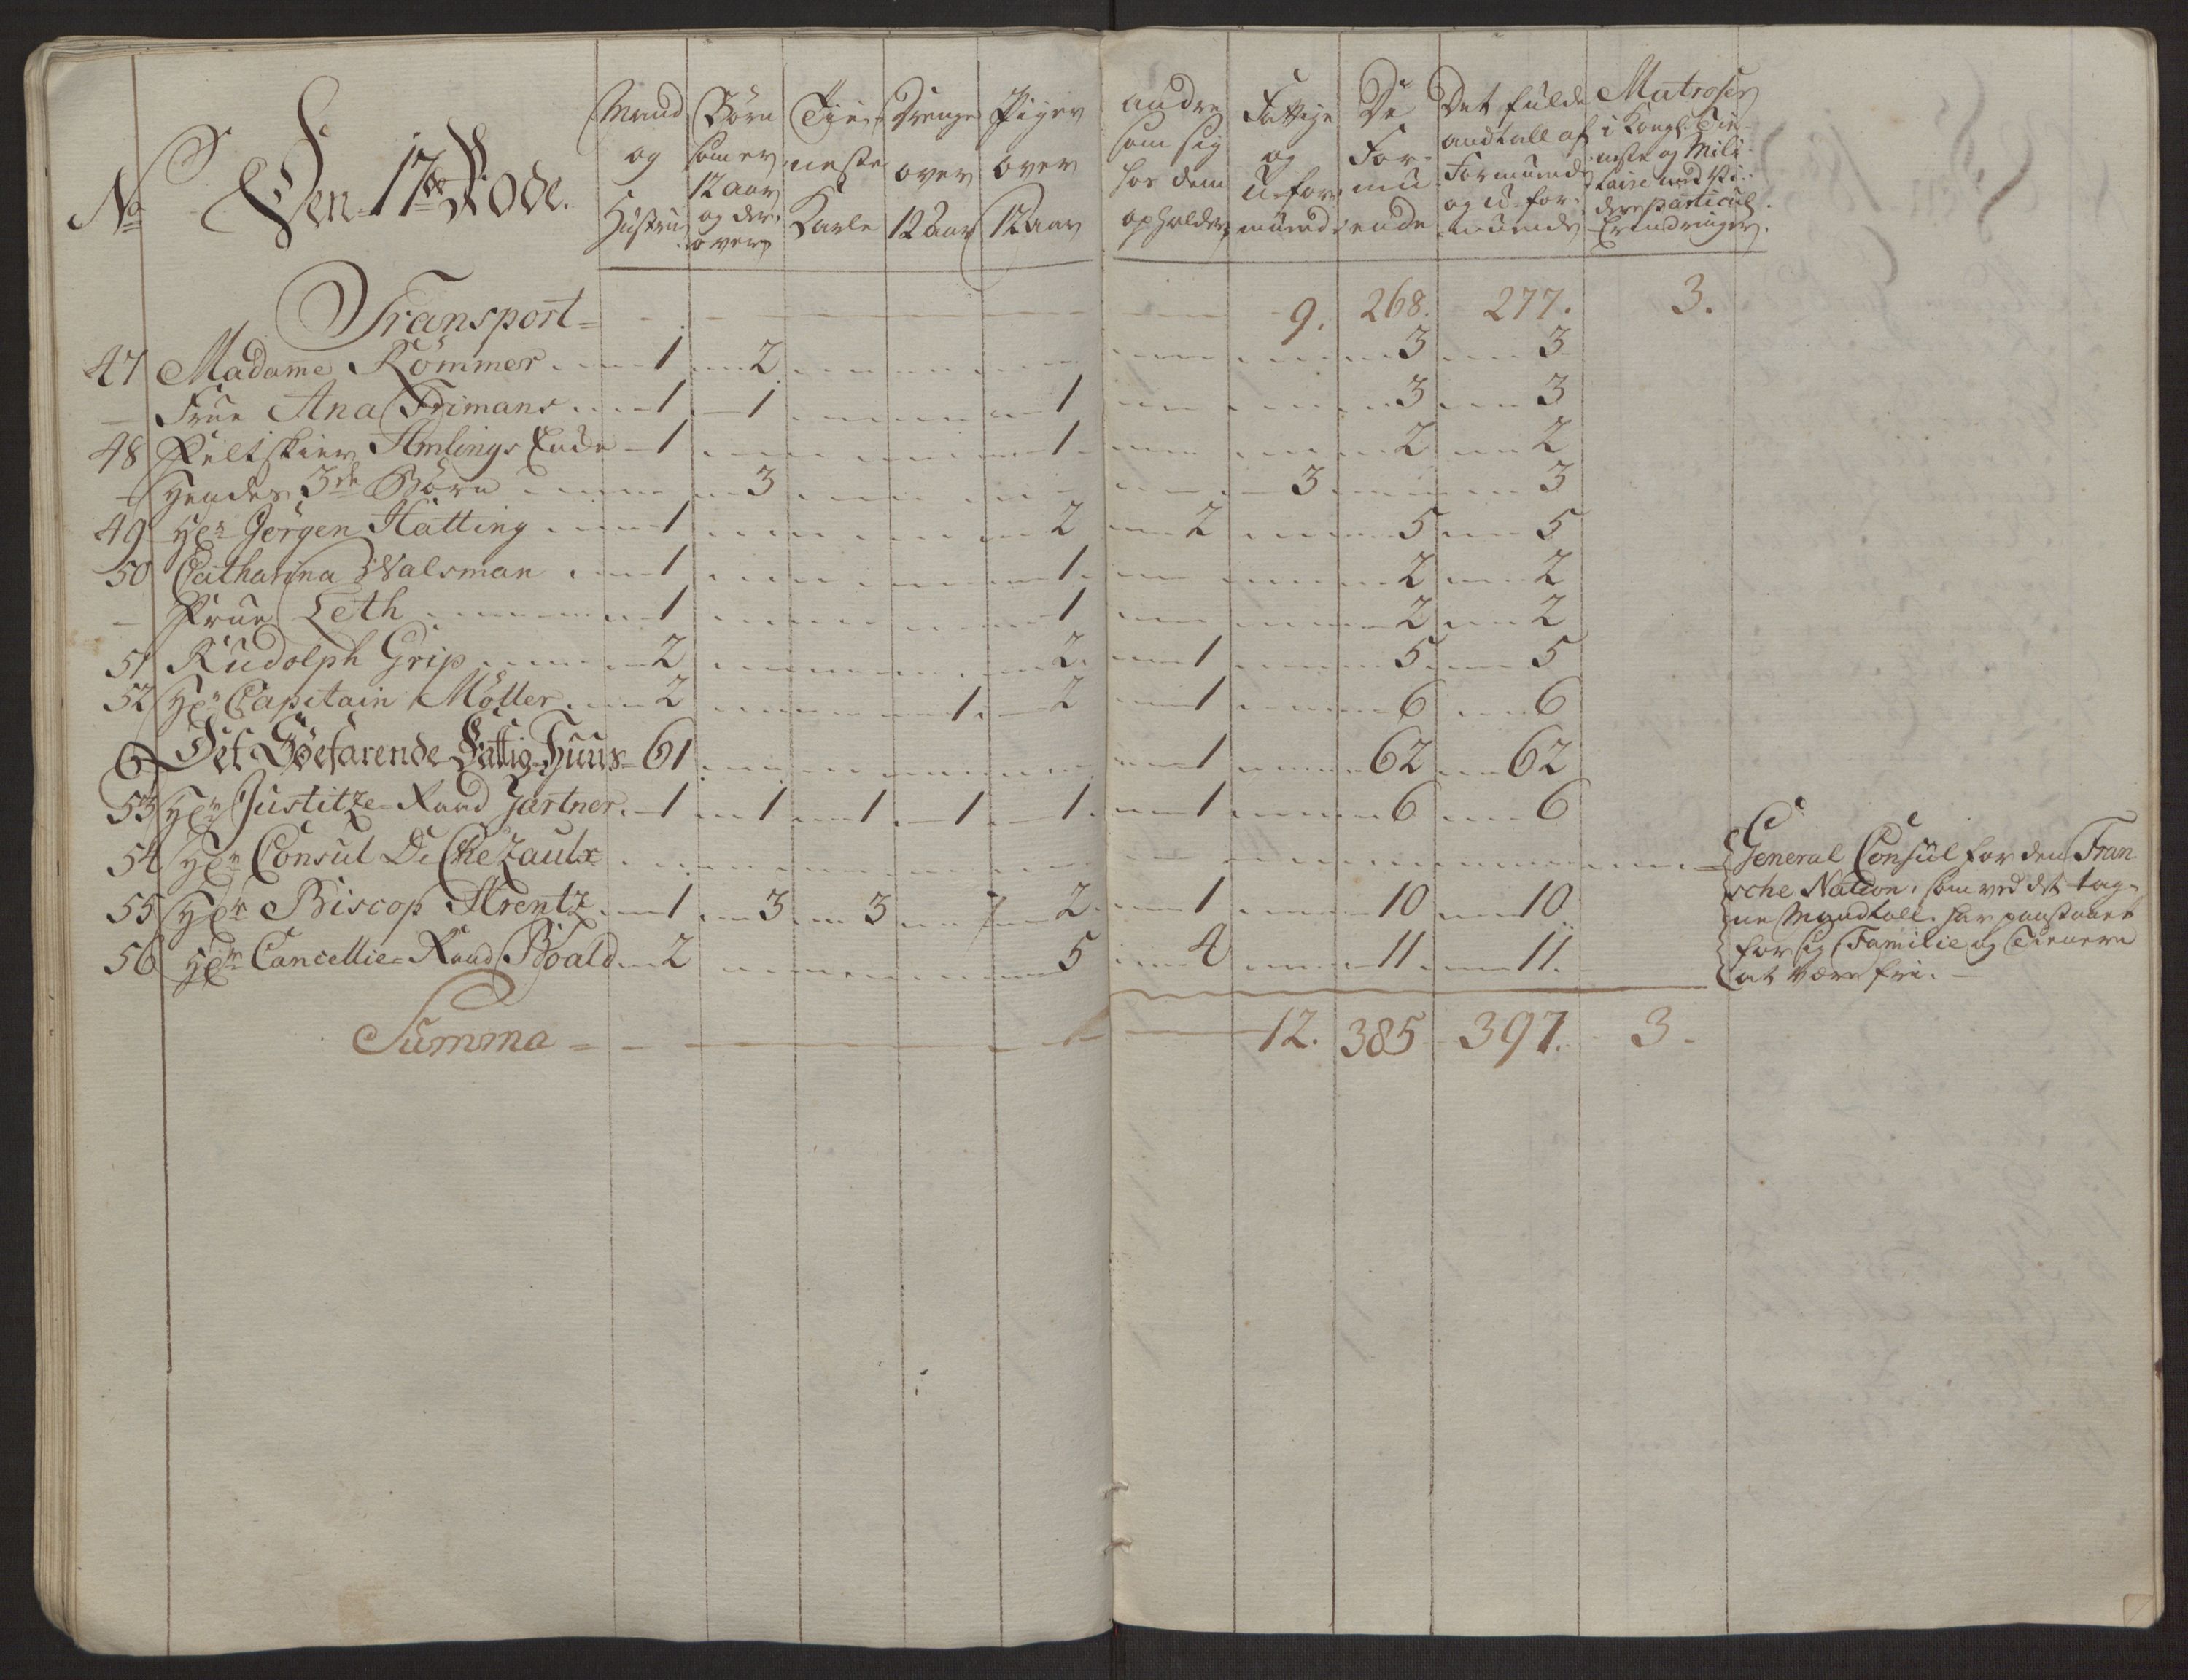 No Den 17de Rode. Mand og Hustru Børn som er 12 aar og der over Tieneste Karle Drenge over 12 Aar Piger over 12 Aar andre som sig hos dem opholder Fattige og U-formuende De Formuende Det fulde andtall af Formuende og U-formuende Matroser i Kongl. Tieneste og Militaire med videre particul. Erindringer.
Transport = 9. 268. 277. 3.
47 Madame Römmer 1 2 3 3
— Frue Ana Frimans 1 1 1 3 3
48 Feltskier Amlings Enke 1 1 2 2
— Hendes 3de Börn 3 3 3
49 Hr Jørgen Hatting 1 2 2 5 5
50 Catharina Walsman 1 1 2 2
— Frue Leth 1 1 2 2
51 Rudolph Grip 2 2 1 5 5
52 Hr Capitain Möller 2 1 2 1 6 6
Det Söefarende Fattig-Huus 61 1 62 62
53 Hr Justitze-Raad Gartner 1 1 1 1 1 1 6 6
54 Hr Consul De Chezaulx
General Consul for den Fran
sche Nation, som ved det tag-
ne Mandtall har paastaaet
for sig, Familie og Tienere
at være fri.
55 Hr Biscop Arentz 1 3 3 2 1 10 10
56 Hr Cancellie-Raad Boald 2 5 4 11 11.
Summa 12. 385 397. 3.